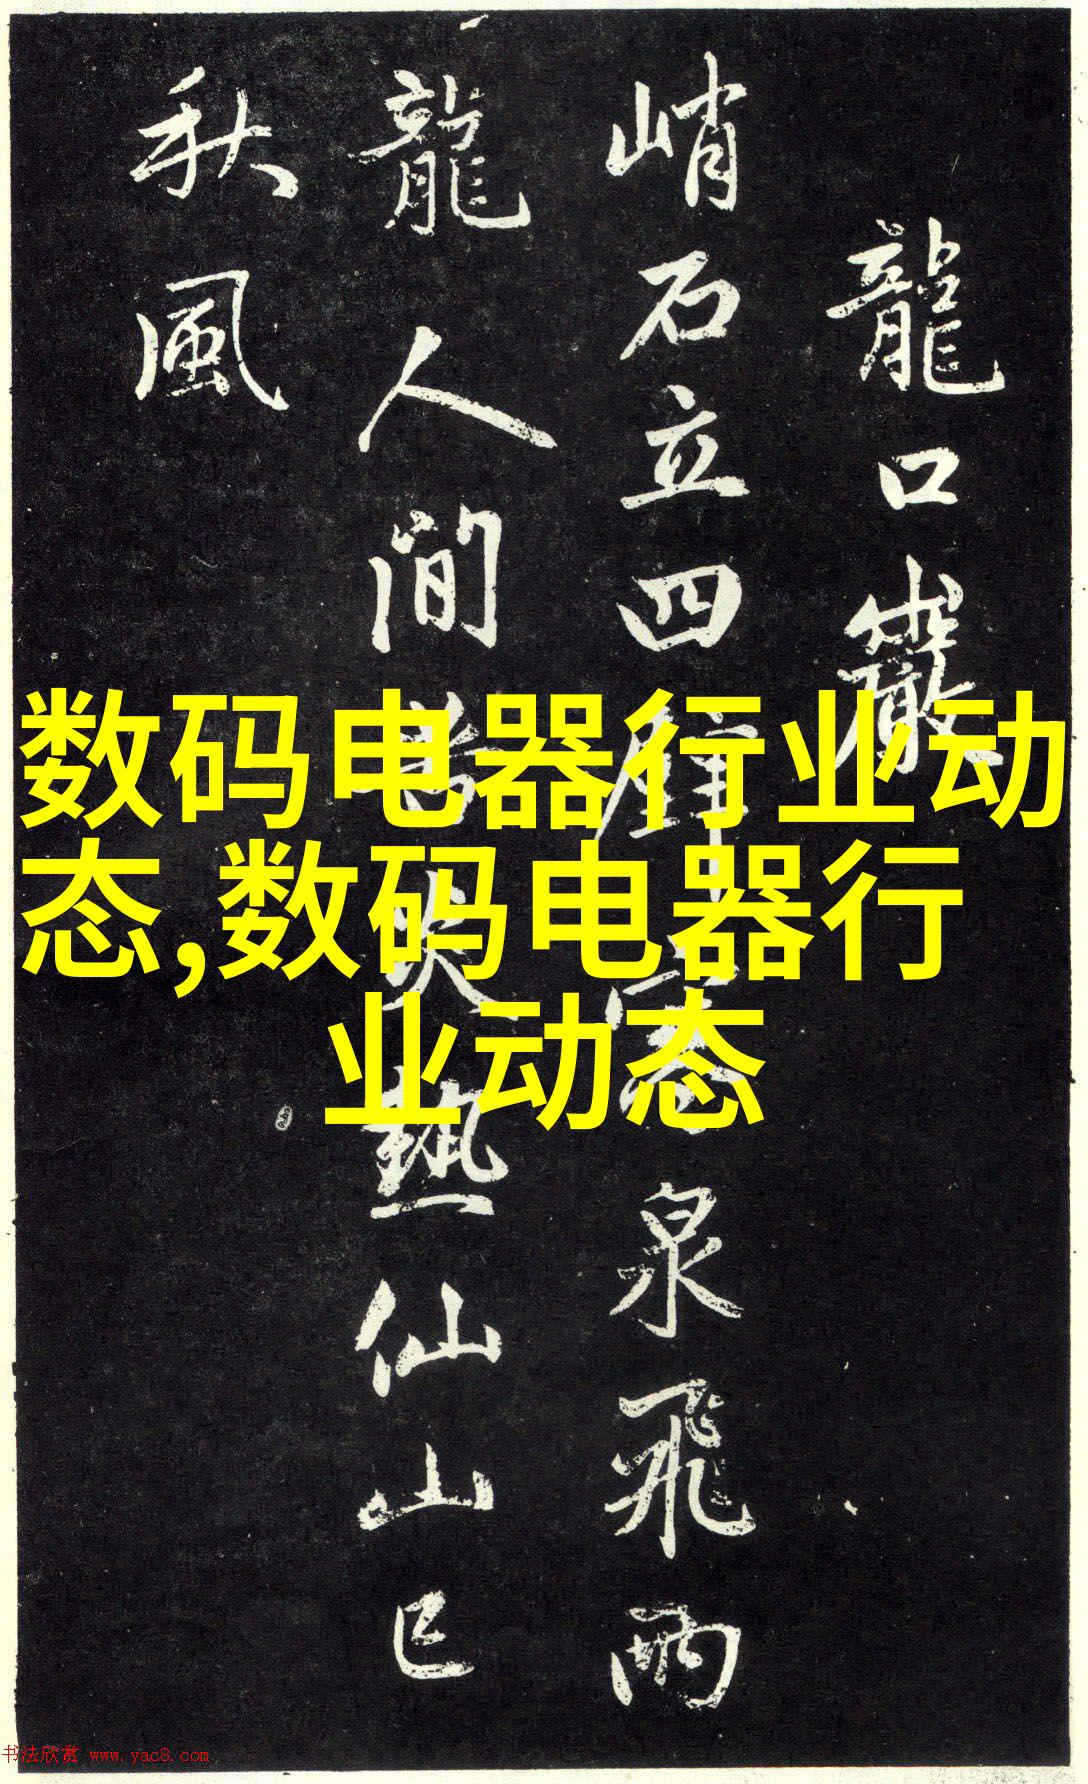 龍口巖
峭石立四壁寒泉飛兩
龍人間苦炎熱仙山已
秋風
数码电器行业动
态,数码电器行
业动态
书法欣赏 www.yac8.com